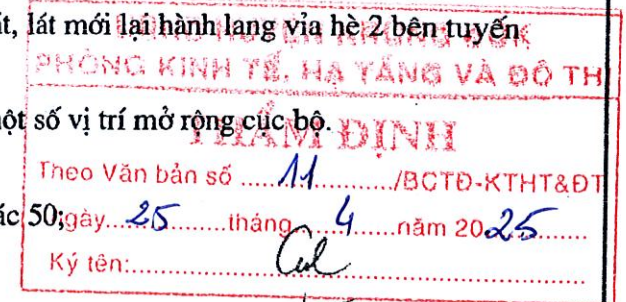 t, lát mới lại hành lang vỉa hè 2 bên tuyến
PHÒNG KINH TẾ, HẠ TẦNG VÀ ĐÔ TH
ột số vị trí mở rộng cục bộ.
THẨM ĐỊNH
Theo Văn bản số ..... 11 ............/BCTĐ-KTHT&ĐT
ác 50;
gày.... 25 ........tháng..... 4 ......năm 2025......
Ký tên:..........................